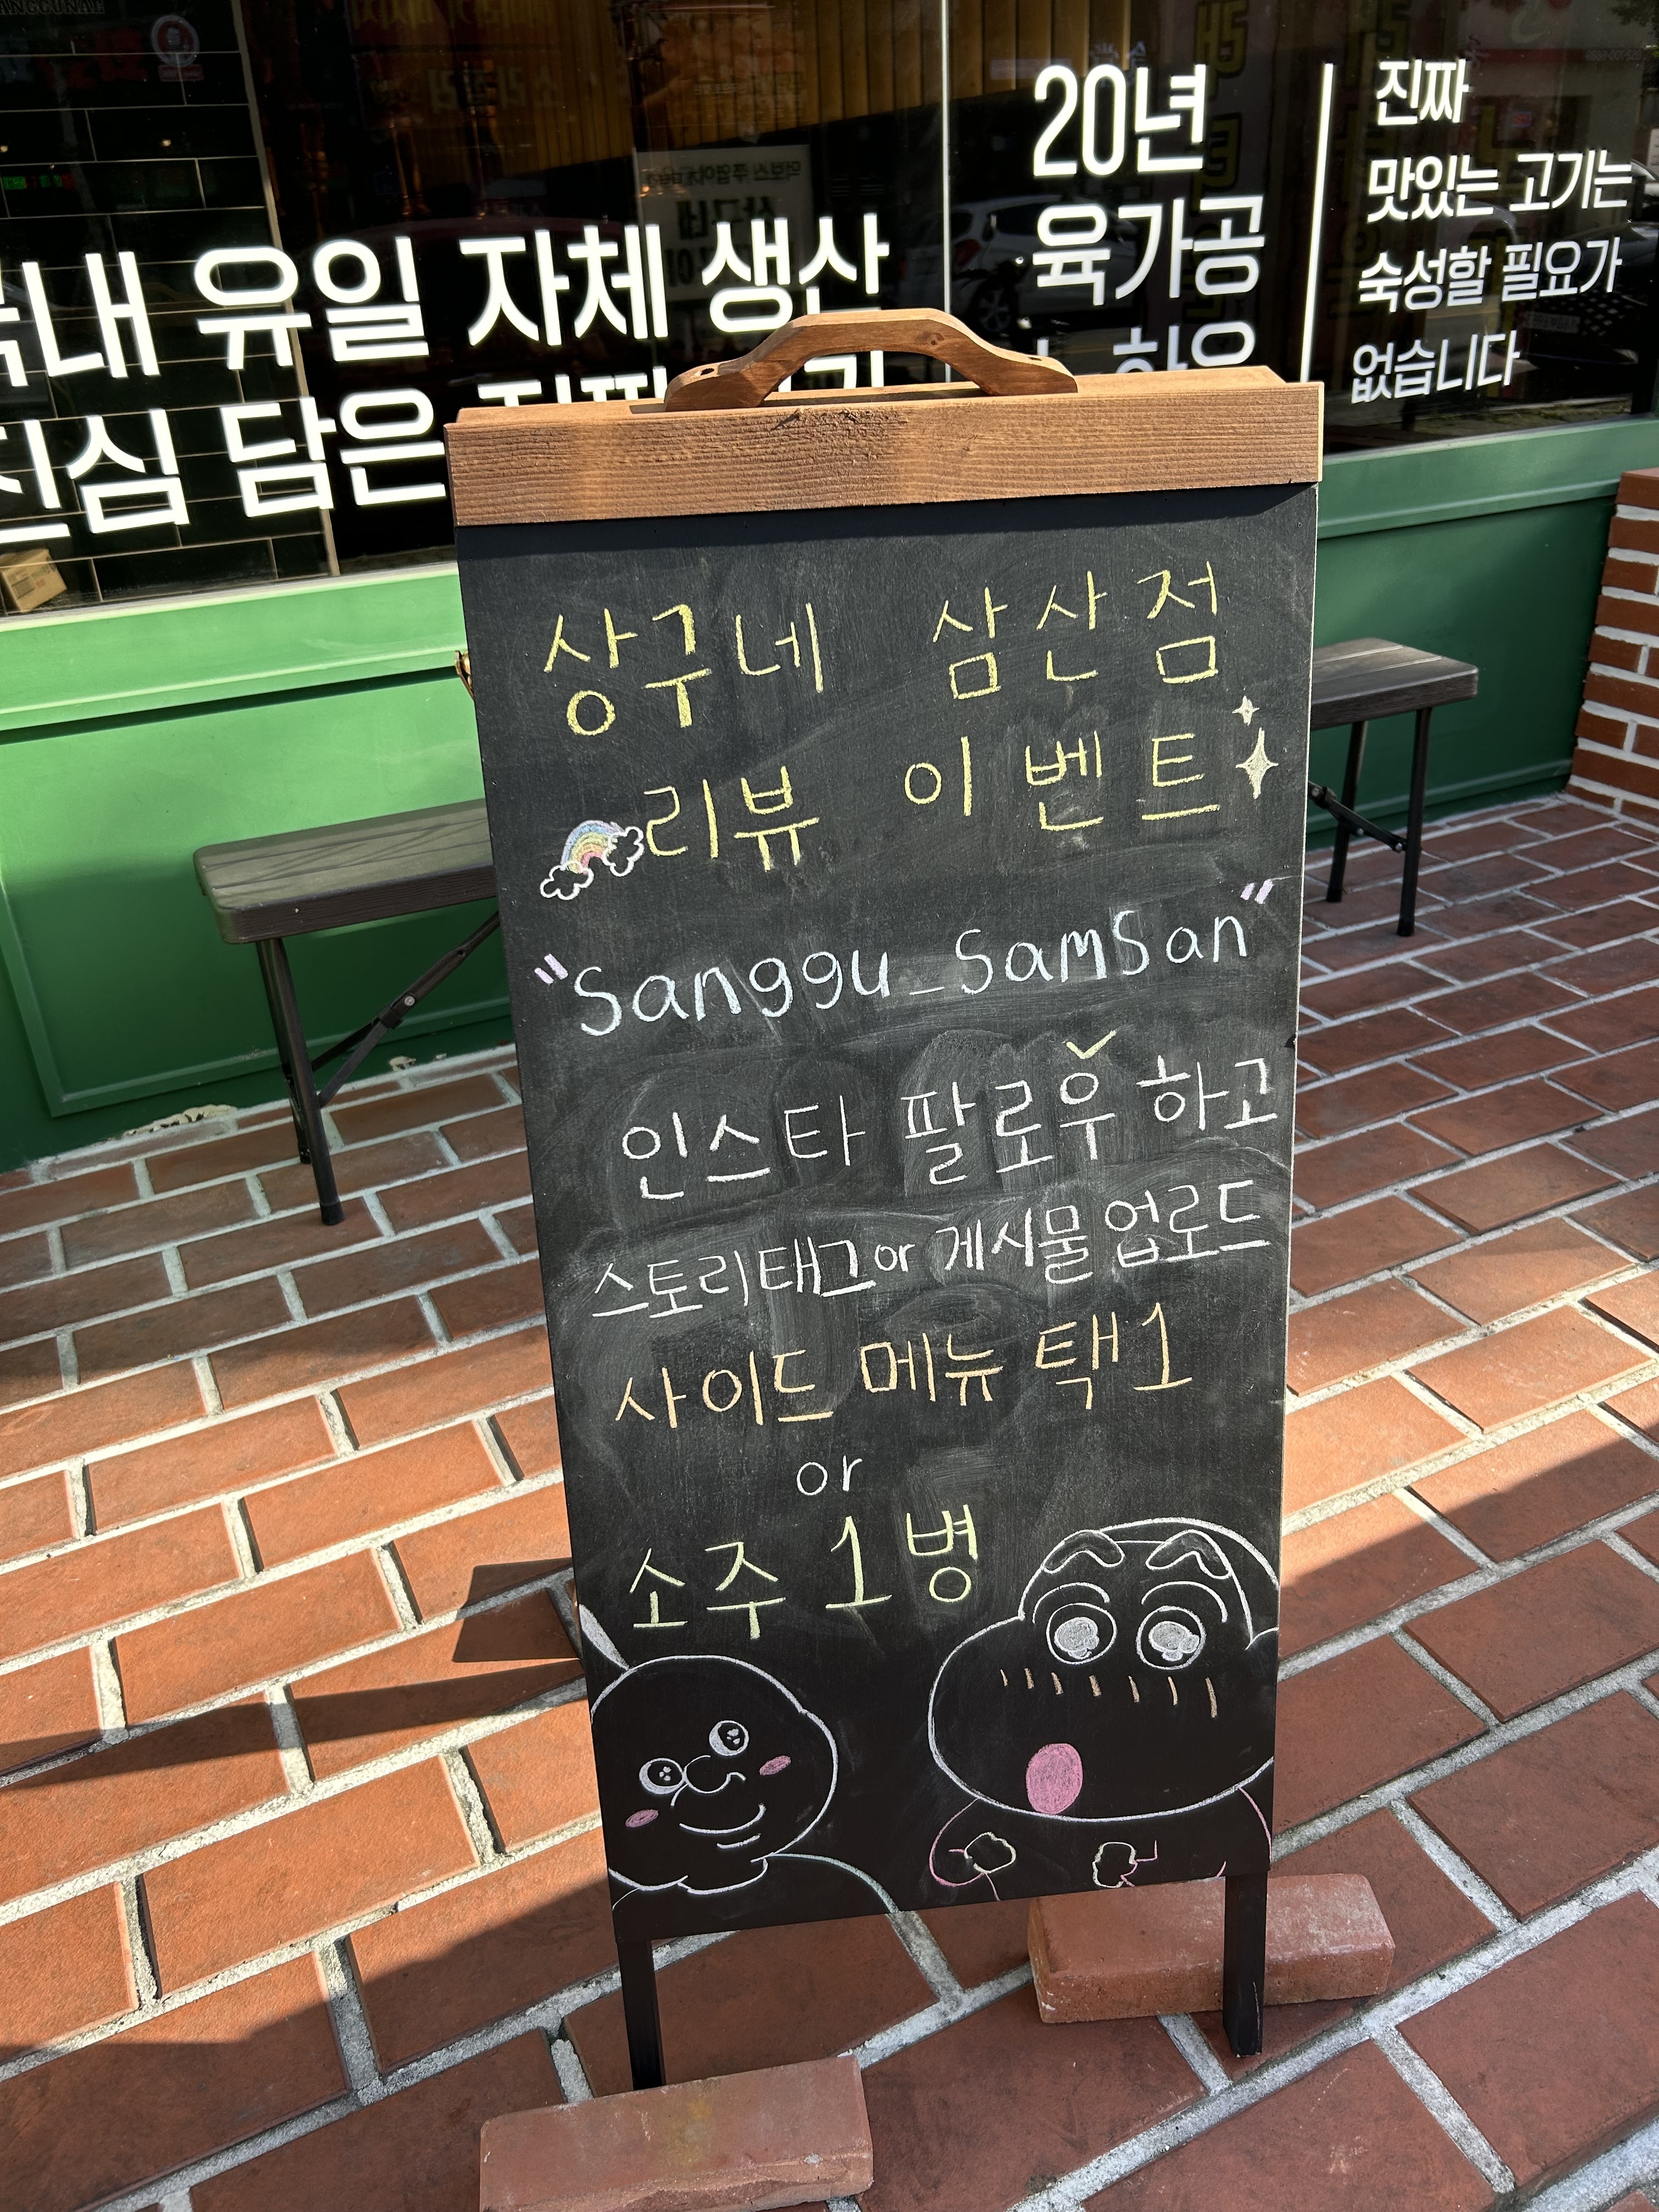 내 유일 자체 생산
진심 담은
20년
육가공
진짜
맛있는 고기는
숙성할 필요가
없습니다
상구네 삼산점
리뷰 이벤트
"Sanggu_SamSan"
인스타 팔로우 하고
스토리태그 or 게시물 업로드
사이드 메뉴 택1
or
소주 1병